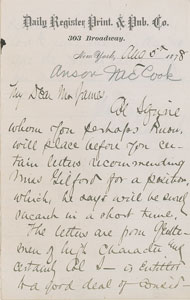 Daily Register Print. & Pub. Co.
303 Broadway.
New York, Aug 5th 1878
Anson McCook
My Dear Mr James
Col
whom you perhaps know,
will place before you cer
tain letters recommending
Miss Gilford for a position,
which, he says will be surely
vacant in a short time.
The letters are from gentle
men of high character and
certainly Col S— is entitled
to a good deal of consid